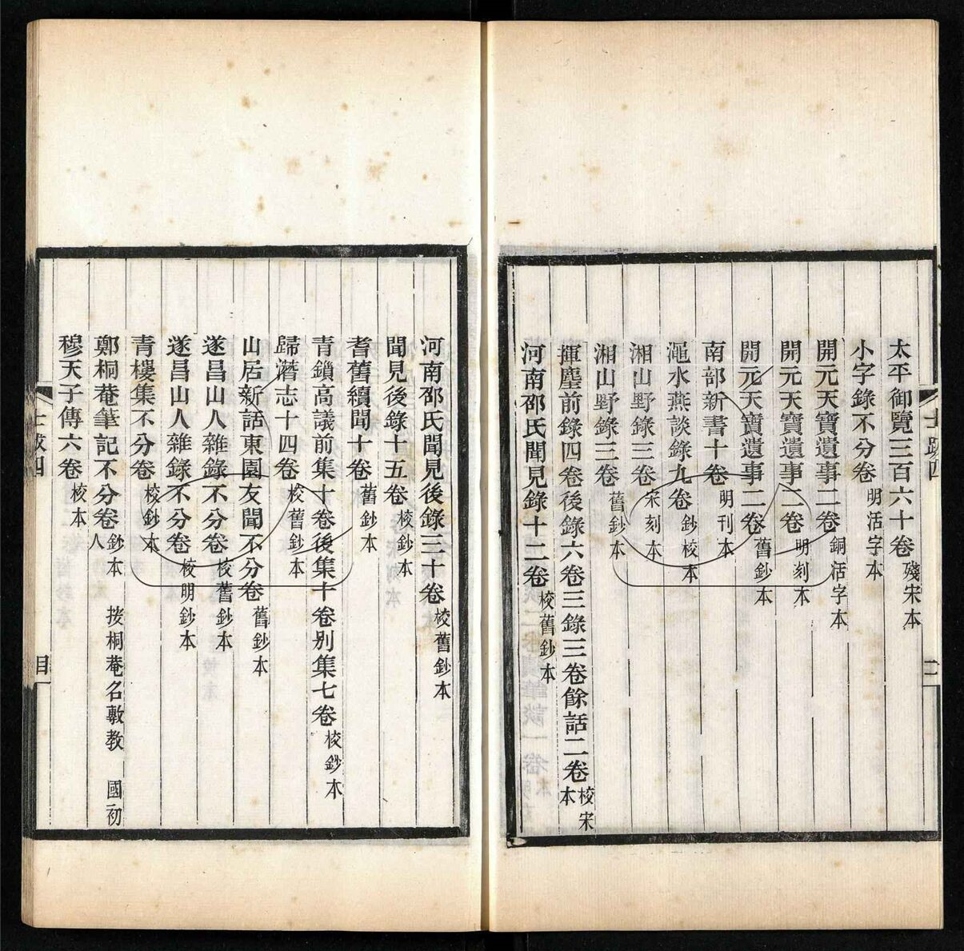 太平御覽三百六十卷 殘宋本
小字錄不分卷 明活字本
開元天寶遺事二卷 銅活字本
開元天寶遺事二卷 明刻本
開元天寶遺事二卷 舊鈔本
南部新書十卷 明刊本
澠水燕談錄九卷 鈔校本
湘山野錄三卷 宋刻本
湘山野錄三卷 舊鈔本
揮麈前錄四卷後錄六卷三錄三卷餘話二卷 校宋本
河南邵氏聞見錄十二卷 校舊鈔本
河南邵氏聞見後錄三十卷 校舊鈔本
聞見後錄十五卷 校鈔本
耆舊續聞十卷 舊鈔
青鎖高議前集十卷後集十卷別集七卷 校鈔本
歸潛志十四卷 校舊鈔本
山居新話東園友聞不分卷 舊鈔本
遂昌山人雜錄不分卷 校舊鈔本
遂昌山人雜錄不分卷 校明鈔本
青樓集不分卷 校鈔本
鄭桐菴筆記不分卷 鈔本 按桐菴名敷教 國初人
穆天子傳六卷 校本